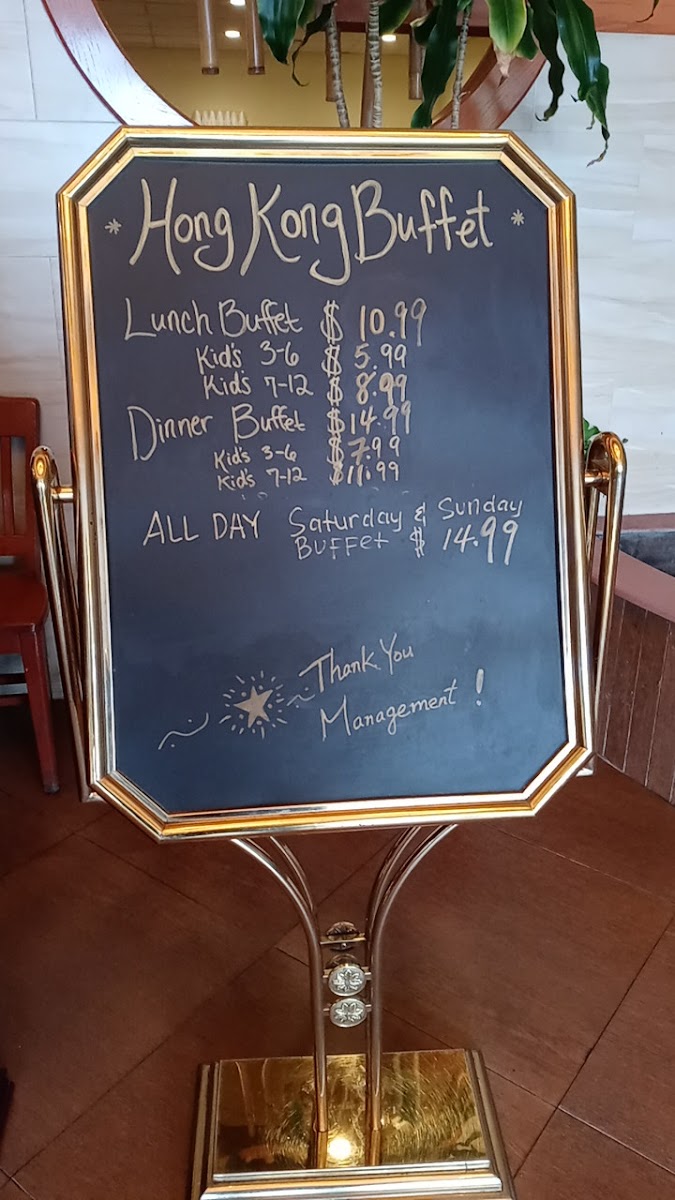 * Hong Kong Buffet *
Lunch Buffet $ 10.99
Kid's 3-6 $ 5.99
Kid's 7-12 $ 8.99
Dinner Buffet $14.99
Kid's 3-6 $7.99
Kid's 7-12 $11.99
ALL DAY Saturday & Sunday
BUFFet $ 14.99
Thank You
Management !